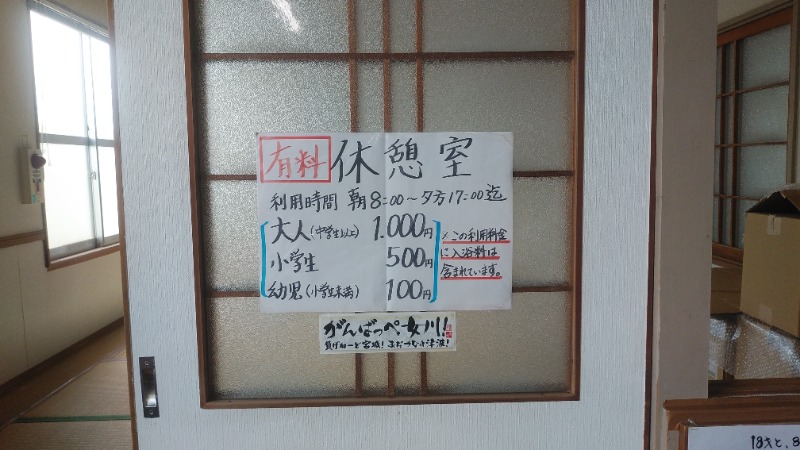 有料 休憩室
利用時間 朝8:00～夕方17:00迄
大人(中学生以上) 1.000円
小学生 500円
幼児(小学生未満) 100円
※この利用料金
に入浴料は
含まれています。
がんばっぺ女川!
負げねーど宮城! まだづなみ津波!